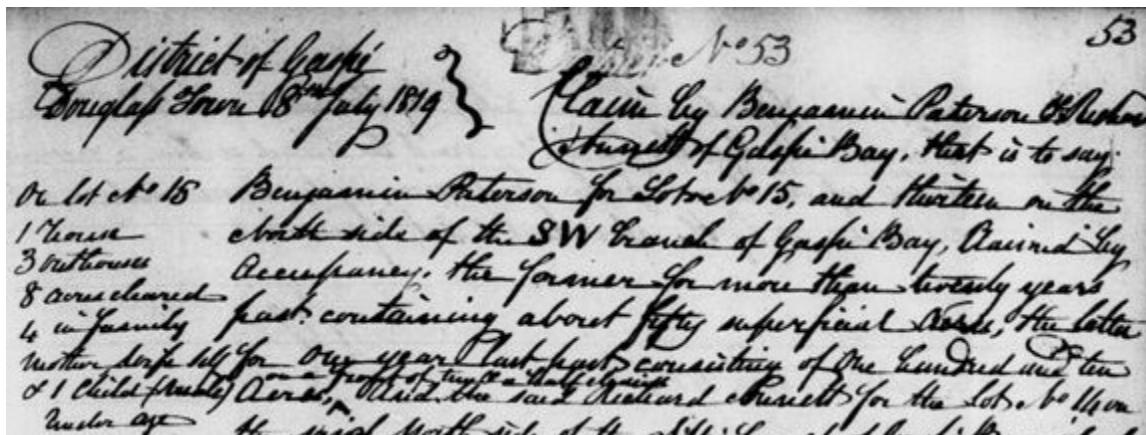 53
District of Gaspé
Douglass Town 8th July 1819
No 53
Claim by Benjamin Paterson & Richard
of Gaspé Bay, that is to say
On lot No 15
1 house
3 outhouses
8 acres cleared
4 in family
mother wife self
& 1 child (male)
under age
Benjamin Paterson for Lots No 15, and thirteen on the
North side of the SW branch of Gaspé Bay, Claimed by
Occupancy, the former for more than twenty years
past containing about fifty superficial Acres, the latter
for One year last past consisting of One hundred and ten
on a front of two & a half
Acres, And the said Richard for the Lot No 14 on
the said North side of the SW